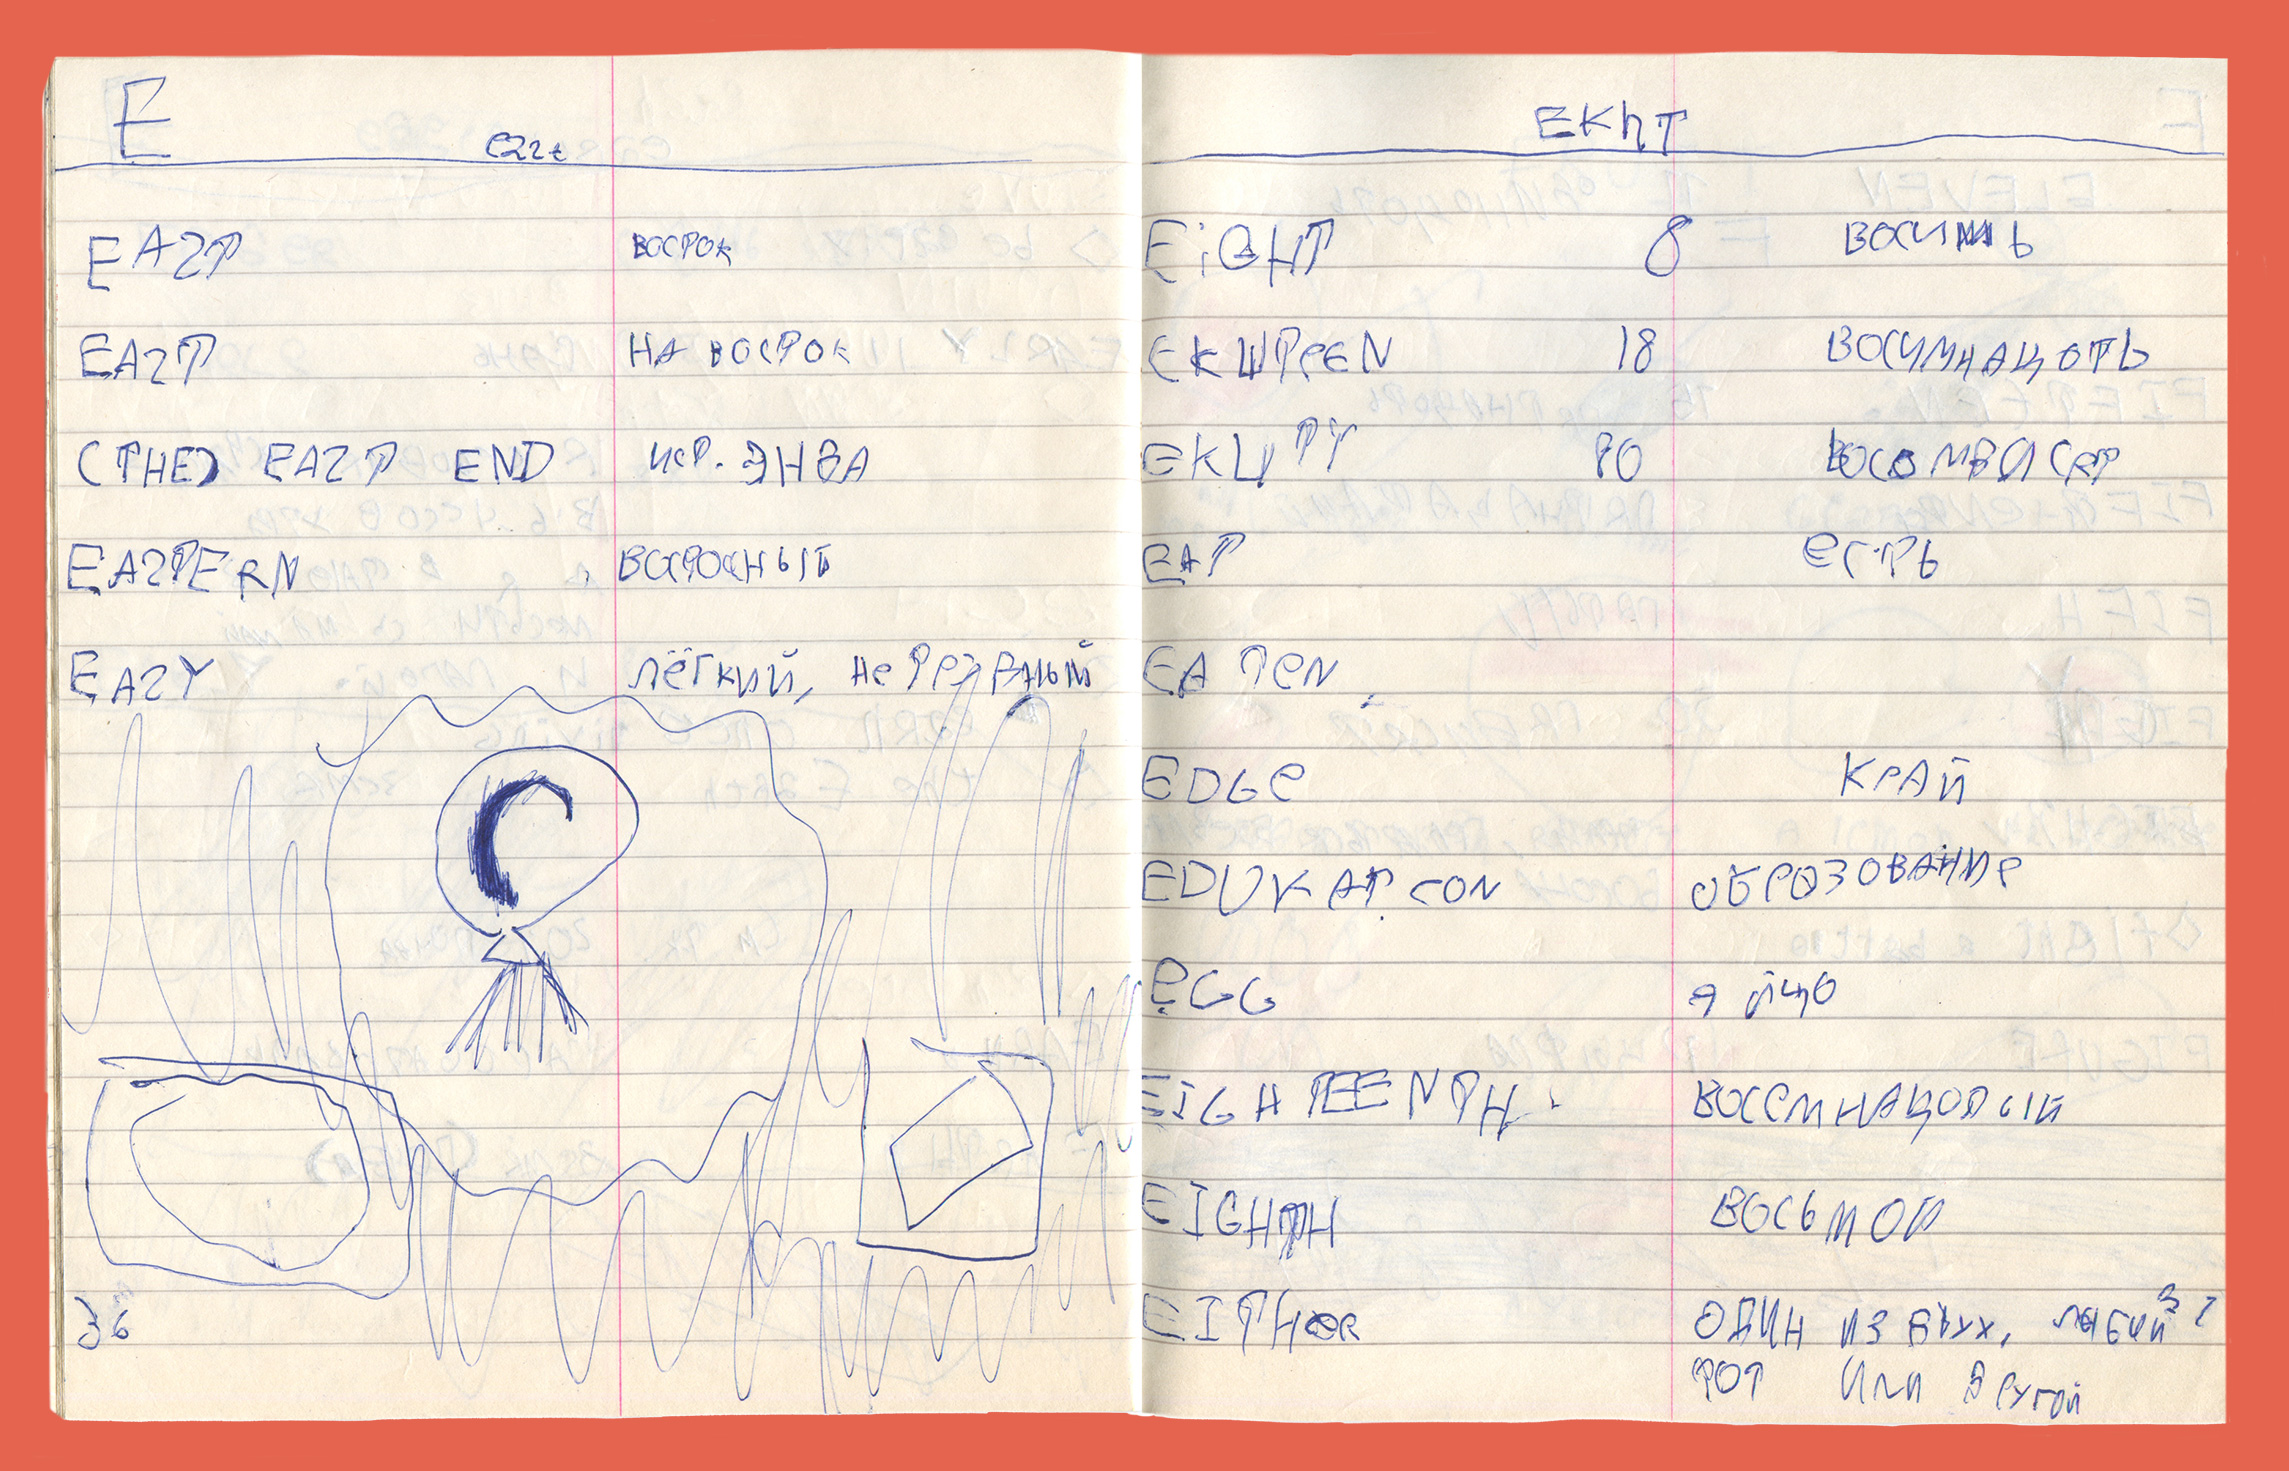 E
ezzt
EAZT ВОСТОК
EAZT НА ВОСТОК
(THE) EAZT END ИСТ. ЭНДА
EAZTERN ВОСТОЧНЫЙ
EAZY ЛЁГКИЙ, НЕ
36
EKhT
EiGHT 8 ВОСИМЬ
EKШTEEN 18 ВОСИМНАЦОТЬ
EKШTY 80 ВОСОМВИСЯТ
EAT ЕСТЬ
EATEN
EDGE КРАЙ
EDUKATION ОБРАЗОВАНИЕ
EGG ЯЙЦО
EIGHTEENTH ВОСЕМНАЦОТЫЙ
EIGHTH ВОСЬМОЙ
EITHER ОДИН ИЗ ДВУХ,
ТОТ ИЛИ ДРУГОЙ
37